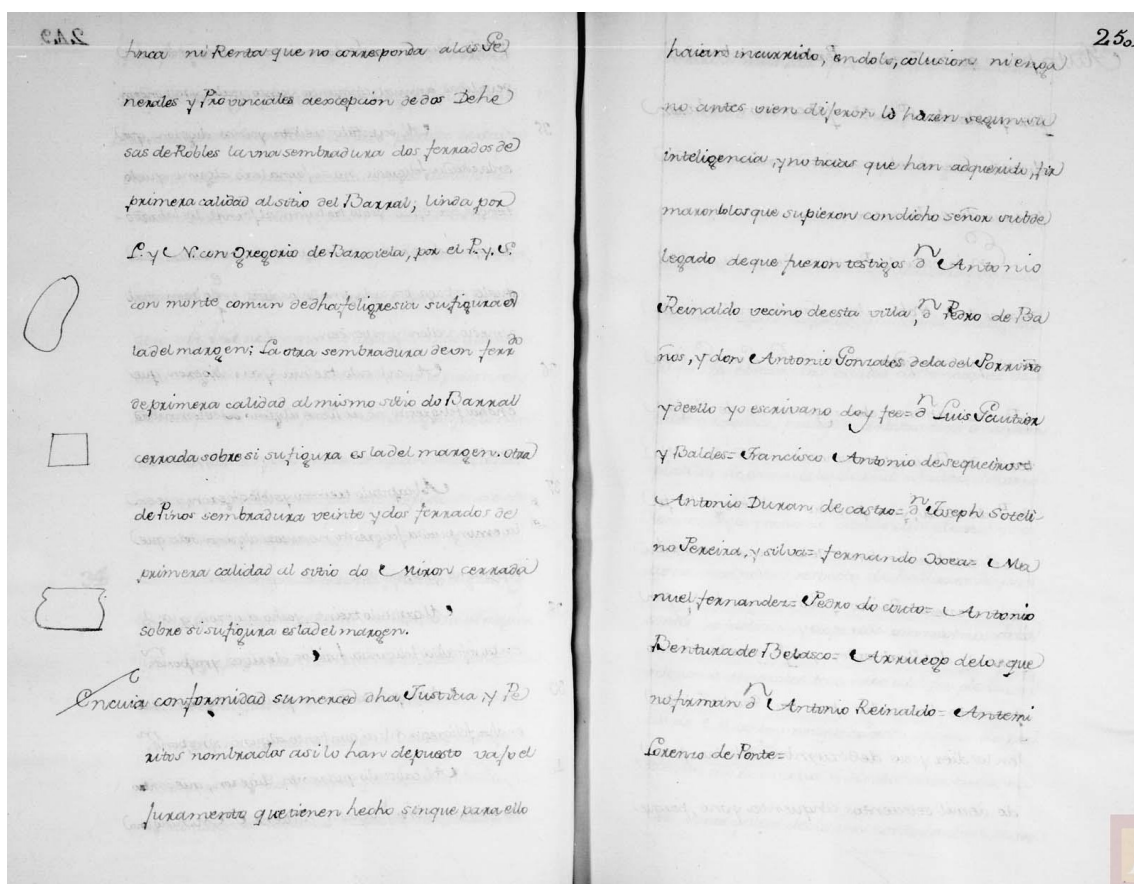 finca ni Renta que no corresponda alas Ge
nerales y Provinciales aexcepcion de dos Dehe
sas de Robles la vna sembradura dos ferrados de
primera calidad al sitio del Barral, linda por
L. y N. con Gregorio de Barciela, por el P. y S.
con monte comun de dha feligresia su figura es
la del margen: La otra sembradura de vn ferrdo
de primera calidad al mismo sitio do Barral
cerrada sobre si su figura es la del margen. otra
de Pinos sembradura veinte y dos ferrados de
primera calidad al sitio do Miron cerrada
sobre si su figura es la del margen.
En cuia conformidad su merced dha Justicia y Pe
ritos nombrados asi lo han depuesto vajo el
Juramento que tienen hecho sin que para ello
250.
haian incurrido, en dolo, colusion ni enga
no antes vien dijeron lo hazen segun su
inteligencia, y noticias que han adquerido, fir
maron los que supieron con dicho señor subde
legado de que fueron testigos dn Antonio
Reinaldo vecino de esta villa, dn Pedro de Ba
ños, y don Antonio Gonzales dela del Porriño
y de ello yo escrivano doy fee= dn Luis Gautier
y Baldes= Francisco Antonio de sequeiros=
Antonio Duran de castro= dn Joseph Soteli
no Pereira, y silva= fernando Ma
nuel fernandez= Pedro do couto= Antonio
Bentura de Belasco= Arruego delos que
no firman dn Antonio Reinaldo= Antemi
Lorenzo de Ponte=